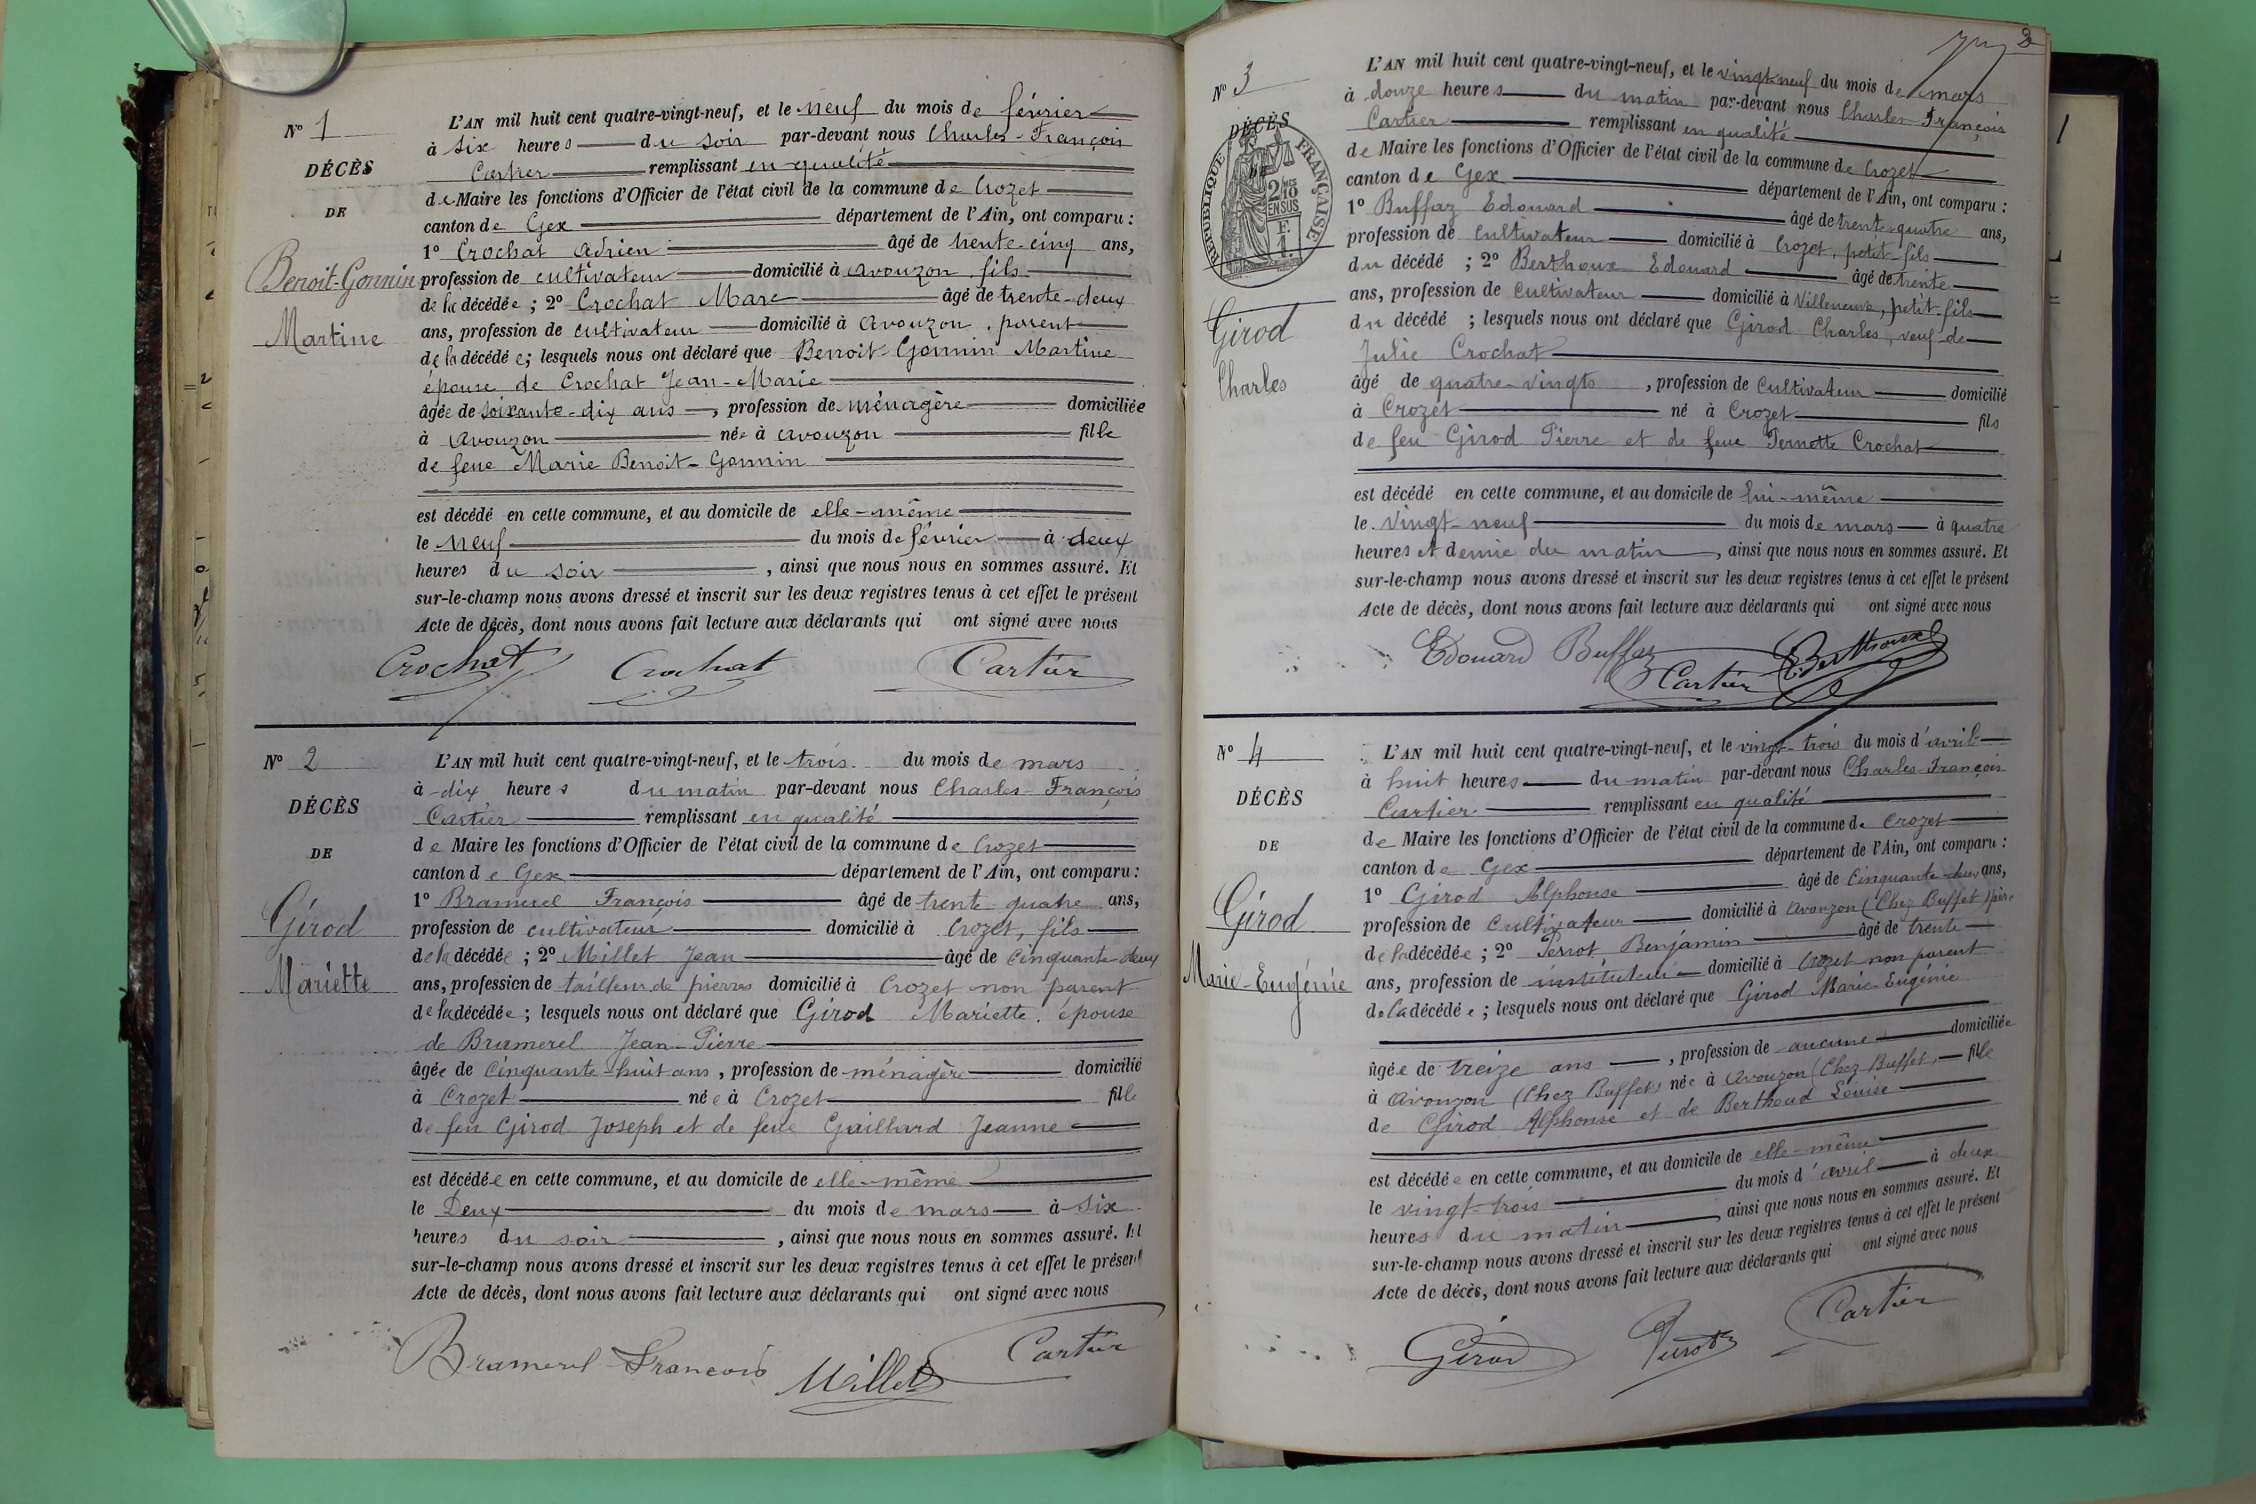 N° 1
DÉCÈS
DE
Benoit-Gonnin
Martine
L'AN mil huit cent quatre-vingt-neuf, et le neuf du mois de février
à six heures du soir par-devant nous Charles-François
Cartier remplissant en qualité
de Maire les fonctions d'Officier de l'état civil de la commune de Crozet
canton de Gex département de l'Ain, ont comparu :
1° Crochat Adrien âgé de trente-cinq ans,
profession de cultivateur domicilié à Avouzon, fils
de la décédée ; 2° Crochat Marc âgé de trente-deux
ans, profession de cultivateur domicilié à Avouzon, parent
de la décédée ; lesquels nous ont déclaré que Benoit-Gonnin Martine
épouse de Crochat Jean-Marie
âgée de soixante-dix ans, profession de ménagère domiciliée
à Avouzon née à Avouzon fille
de feue Marie Benoit-Gonnin
est décédé en cette commune, et au domicile de elle-même
le neuf du mois de février à deux
heures du soir, ainsi que nous nous en sommes assuré. Et
sur-le-champ nous avons dressé et inscrit sur les deux registres tenus à cet effet le présent
Acte de décès, dont nous avons fait lecture aux déclarants qui ont signé avec nous
Crochat Crochat Cartier
N° 2
DÉCÈS
DE
Girod
Mariette
L'AN mil huit cent quatre-vingt-neuf, et le trois du mois de mars
à dix heures du matin par-devant nous Charles-François
Cartier remplissant en qualité
de Maire les fonctions d'Officier de l'état civil de la commune de Crozet
canton de Gex département de l'Ain, ont comparu :
1° Bramerel François âgé de trente-quatre ans,
profession de cultivateur domicilié à Crozet, fils
de la décédée ; 2° Millet Jean âgé de cinquante-deux
ans, profession de tailleur de pierres domicilié à Crozet non parent
de la décédée ; lesquels nous ont déclaré que Girod Mariette, épouse
de Bramerel Jean-Pierre
âgée de cinquante-huit ans, profession de ménagère domicilié
à Crozet née à Crozet fille
de feu Girod Joseph et de feue Gaillard Jeanne
est décédée en cette commune, et au domicile de elle-même
le Deux du mois de mars à six
heures du soir, ainsi que nous nous en sommes assuré. Et
sur-le-champ nous avons dressé et inscrit sur les deux registres tenus à cet effet le présent
Acte de décès, dont nous avons fait lecture aux déclarants qui ont signé avec nous
Bramerel François Millet Cartier
2
N° 3
DÉCÈS
DE
RÉPUBLIQUE FRANÇAISE
2/10 EN SUS
F.
1.
Girod
Charles
L'AN mil huit cent quatre-vingt-neuf, et le vingt-neuf du mois de mars
à douze heures du matin par-devant nous Charles-François
Cartier remplissant en qualité
de Maire les fonctions d'Officier de l'état civil de la commune de Crozet
canton de Gex département de l'Ain, ont comparu :
1° Buffaz Edouard âgé de trente-quatre ans,
profession de cultivateur domicilié à Crozet, petit-fils
du décédé ; 2° Berthoux Edouard âgé de trente
ans, profession de cultivateur domicilié à Villeneuve, petit-fils
du décédé ; lesquels nous ont déclaré que Girod Charles, veuf de
Julie Crochat
âgé de quatre-vingts, profession de cultivateur domicilié
à Crozet né à Crozet fils
de feu Girod Pierre et de feue Pernette Crochat
est décédé en cette commune, et au domicile de lui-même
le vingt-neuf du mois de mars à quatre
heures et demie du matin, ainsi que nous nous en sommes assuré. Et
sur-le-champ nous avons dressé et inscrit sur les deux registres tenus à cet effet le présent
Acte de décès, dont nous avons fait lecture aux déclarants qui ont signé avec nous
Edouard Buffaz Cartier Berthoux
N° 4
DÉCÈS
DE
Girod
Marie-Eugénie
L'AN mil huit cent quatre-vingt-neuf, et le vingt-trois du mois d'avril
à huit heures du matin par-devant nous Charles-François
Cartier remplissant en qualité
de Maire les fonctions d'Officier de l'état civil de la commune de Crozet
canton de Gex département de l'Ain, ont comparu :
1° Girod Alphonse âgé de cinquante-deux ans,
profession de cultivateur domicilié à Avouzon (Chez Buffet) père
de la décédée ; 2° Perrot Benjamin âgé de trente
ans, profession de instituteur domicilié à Crozet non parent
de la décédée ; lesquels nous ont déclaré que Girod Marie-Eugénie
âgée de treize ans, profession de aucune domiciliée
à Avouzon (Chez Buffet) née à Avouzon (Chez Buffet) fille
de Girod Alphonse et de Berthoud Louise
est décédée en cette commune, et au domicile de elle-même
le vingt-trois du mois d'avril à deux
heures du matin, ainsi que nous nous en sommes assuré. Et
sur-le-champ nous avons dressé et inscrit sur les deux registres tenus à cet effet le présent
Acte de décès, dont nous avons fait lecture aux déclarants qui ont signé avec nous
Girod Perrot Cartier